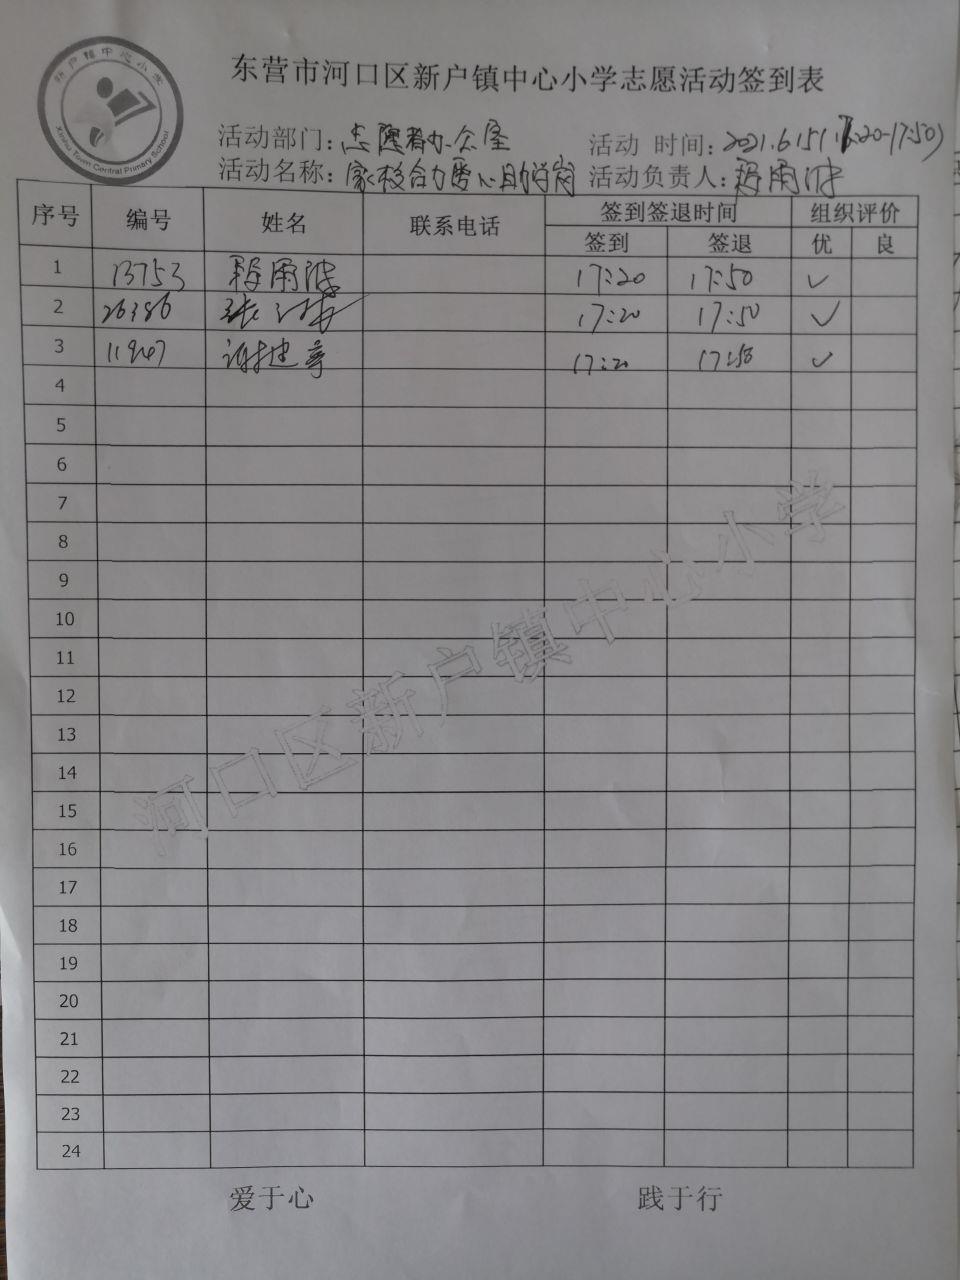 新户镇中心小学
Xinhu Town Central Primary School
东营市河口区新户镇中心小学志愿活动签到表
活动部门：志愿者办公室 活动 时间：2021.6.15（17:20-17:50）
活动名称：家校合力爱心助学岗 活动负责人：雨波
序号 编号 姓名 联系电话 签到签退时间 组织评价
签到 签退 优 良
1 13753 雨波 17:20 17:50 ✓
2 26386 张 17:20 17:50 ✓
3 11947 谢建 17:20 17:50 ✓
4
5
6
7
8
9
10
11
12
13
14
15
16
17
18
19
20
21
22
23
24
河口区新户镇中心小学
爱于心 践于行